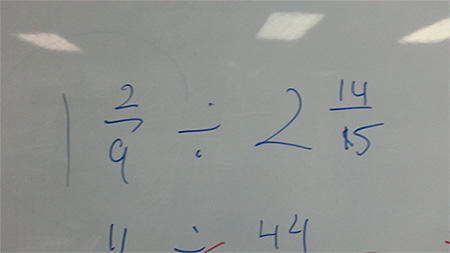 1 2/9 ÷ 2 14/15
11 ÷ 44